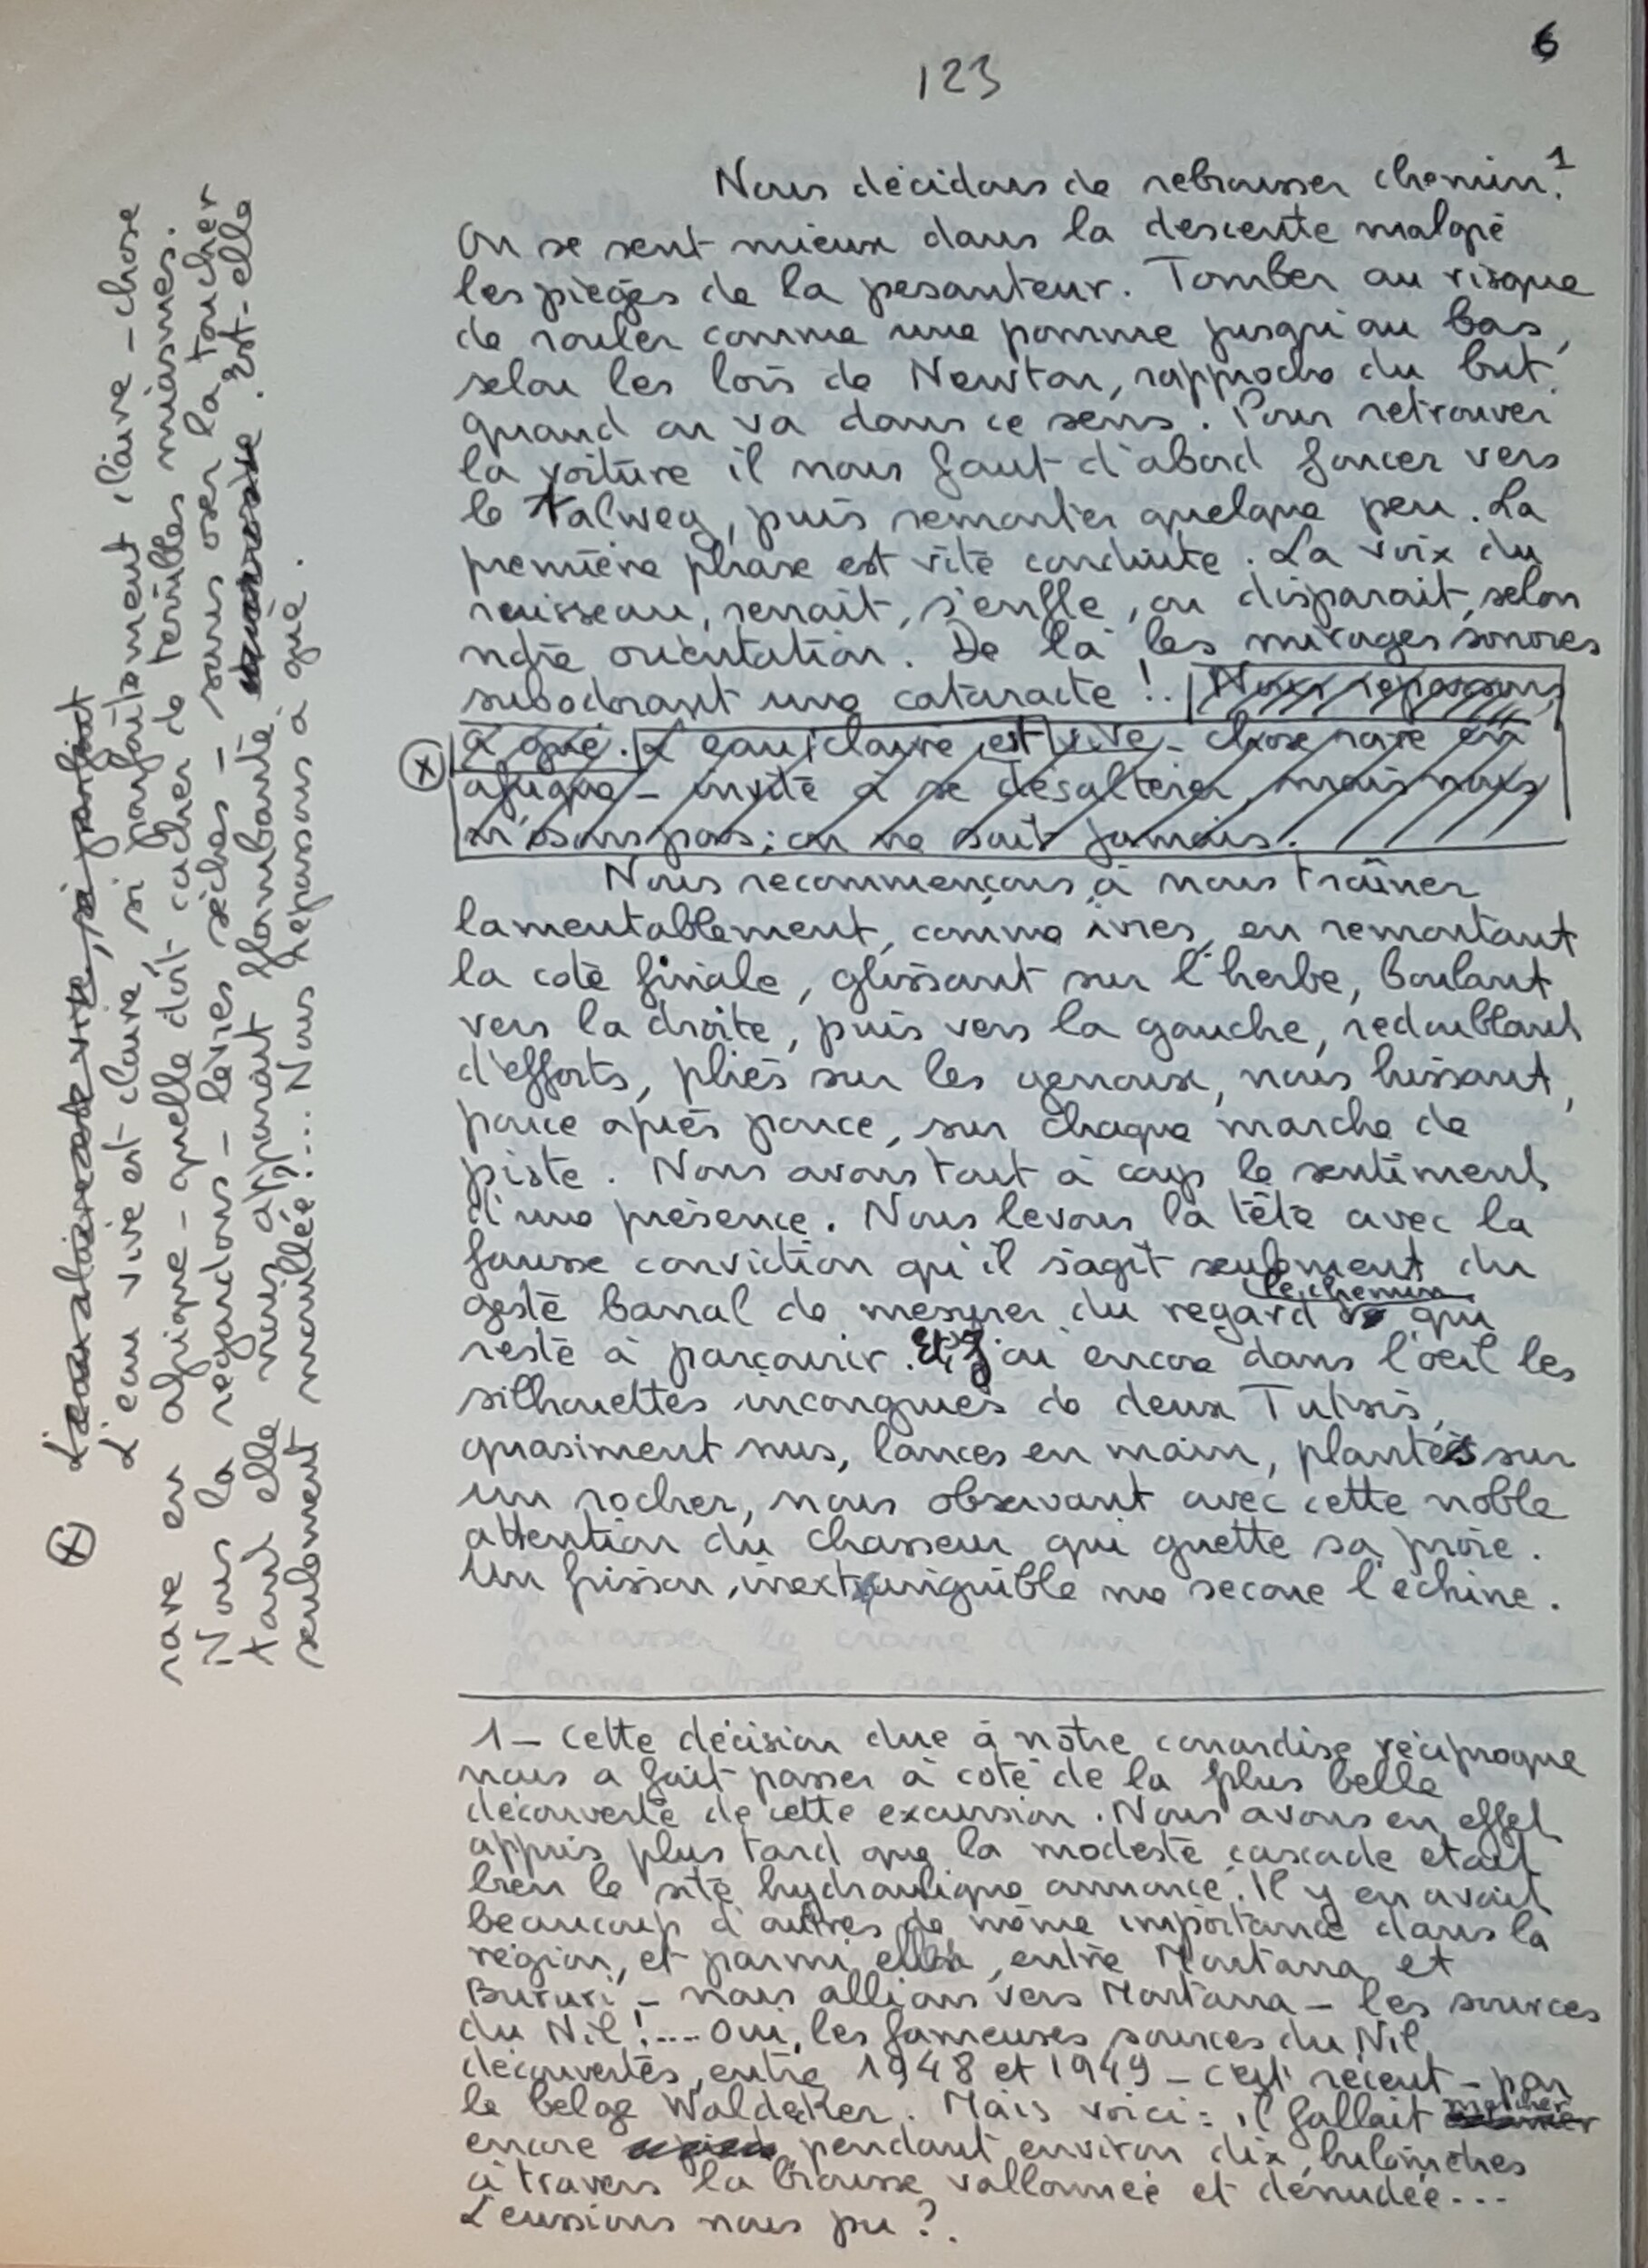 6
123
Nous décidons de rebrousser chemin.¹
On se sent mieux dans la descente malgré
les pièges de la pesanteur. Tomber au risque
de rouler comme une pomme jusqu'au bas,
selon les lois de Newton, rapproche du but,
quand on va dans ce sens. Pour retrouver
la voiture il nous faut d'abord foncer vers
le talweg, puis remonter quelque peu. La
première phase est vite conduite. La voix du
ruisseau, renait, s'enfle, ou disparait, selon
notre orientation. De là les mirages sonores
subodorant une cataracte !. Nous repassons
à gué. L'eau claire est vive - chose rare en
afrique - invite à se désaltérer, mais nous
n'osons pas ; on ne sait jamais.
Nous recommençons à nous traîner
lamentablement, comme ivres, en remontant
la côte finale, glissant sur l'herbe, boulant
vers la droite, puis vers la gauche, redoublant
d'efforts, pliés sur les genoux, nous hissant,
pouce après pouce, sur chaque marche de
piste. Nous avons tout à coup le sentiment
d'une présence. Nous levons la tête avec la
fausse conviction qu'il s'agit seulement du
geste banal de mesurer du regard le chemin qui
reste à parcourir. Et j'ai encore dans l'oeil les
silhouettes incongrues de deux Tutsis,
quasiment nus, lances en main, plantés sur
un rocher, nous observant avec cette noble
attention du chasseur qui guette sa proie.
Un frisson inextinguible me secoue l'échine.
1 - Cette décision due à notre couardise réciproque
nous a fait passer à coté de la plus belle
découverte de cette excursion. Nous avons en effet
appris plus tard que la modeste cascade était
bien le site hydraulique annoncé. Il y en avait
beaucoup d'autres de même importance dans la
région, et parmi elles, entre Montana et
Bururi - nous allions vers Montana - les sources
du Nil !.... Oui, les fameuses sources du Nil,
découvertes, entre 1948 et 1949 - c'est récent - par
le belge Waldeker. Mais voici : il fallait marcher
encore pendant environ dix kilomètres
à travers la brousse vallonnée et dénudée...
L'eussions nous pu ?.
(x) L'eau claire est vive, si parfait
L'eau vive est claire, si parfaitement claire - chose
rare en afrique - quelle doit cacher de terribles miasmes.
Nous la regardons - lèvres sèches - sans oser la toucher
tant elle nous apparait flambante. Est-elle
seulement mouillée ?.... Nous repassons à gué.
(x)